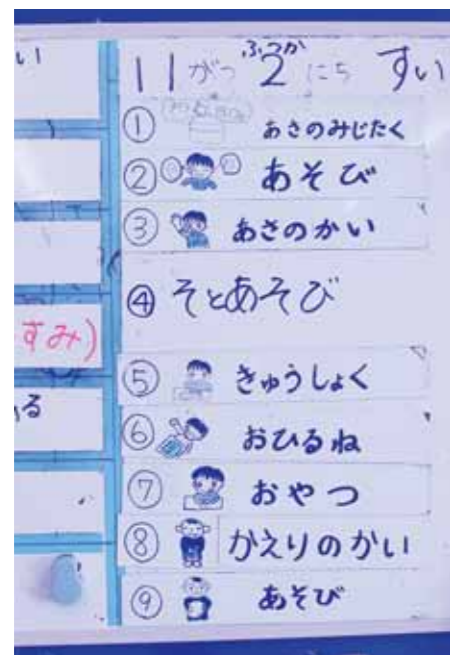 い
11がつ2にち すい
ふつか
① あさのみじたく
② あそび
③ あさのかい
④ そとあそび
すみ)
⑤ きゅうしょく
る
⑥ おひるね
⑦ おやつ
⑧ かえりのかい
⑨ あそび